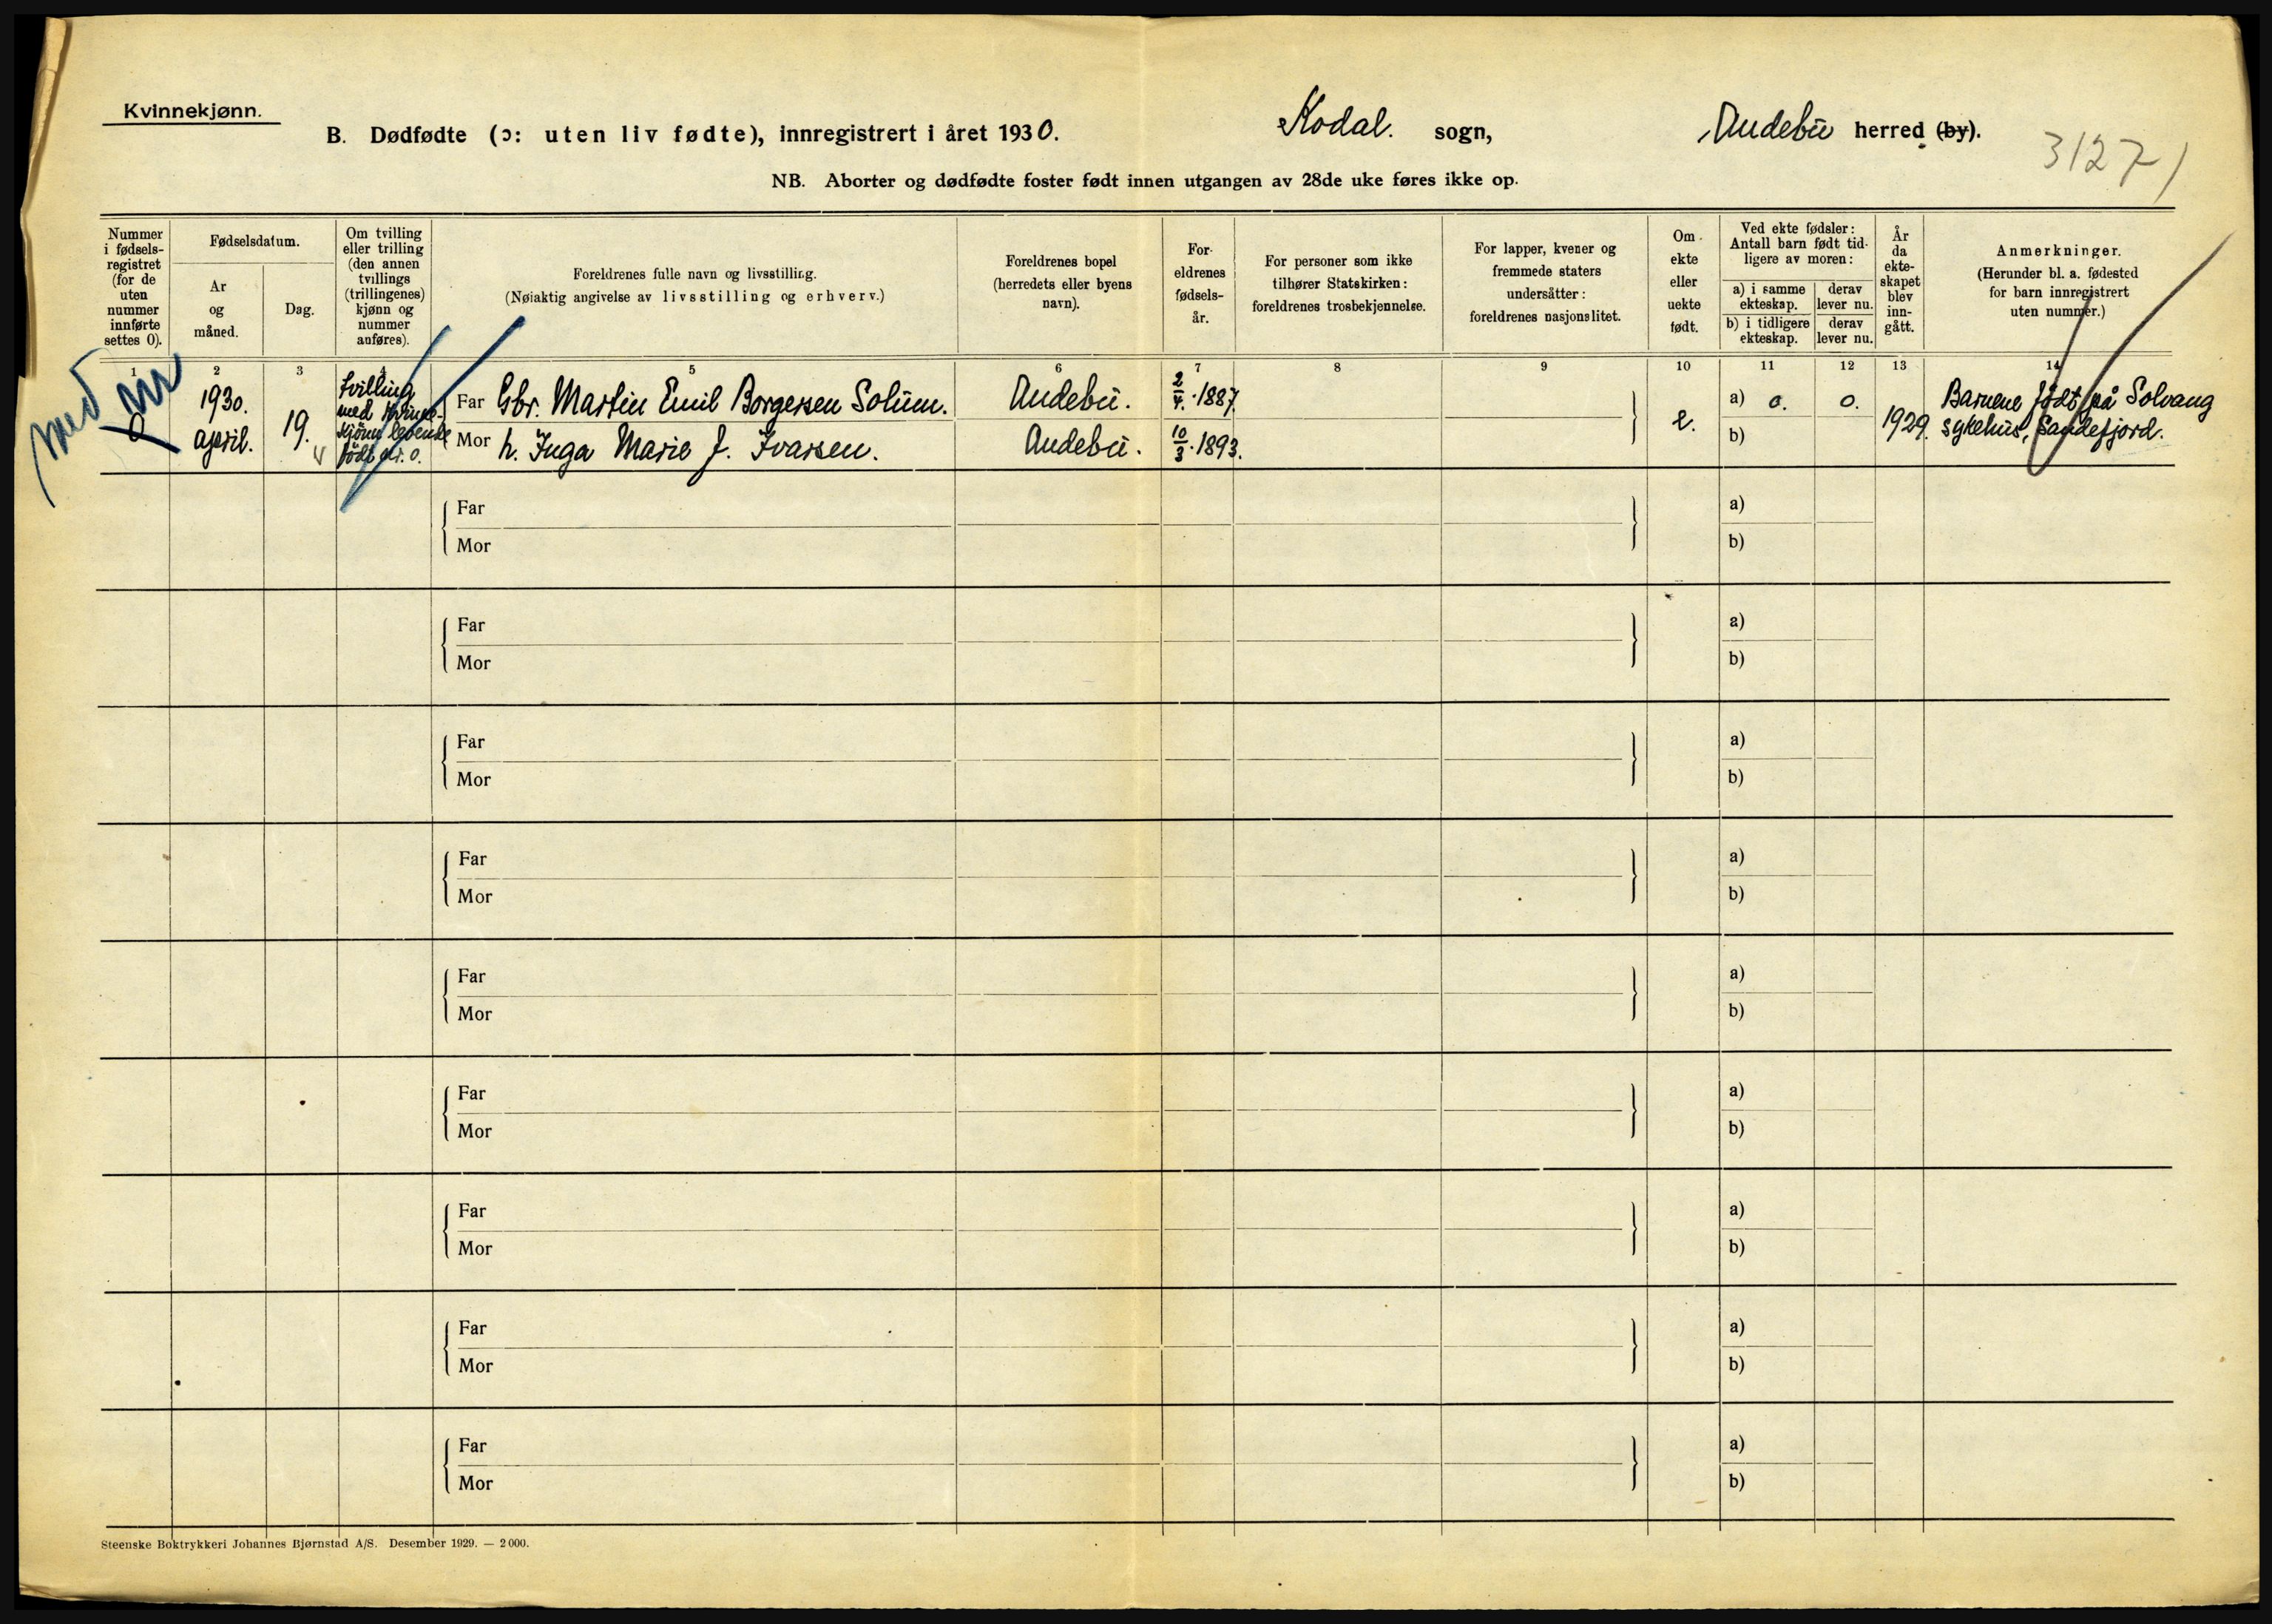 Kvinnekjønn.
B. Dødfødte (ɔ: uten liv fødte), innregistrert i året 1930. Kodal. sogn, Andebu herred (by).
31271
NB. Aborter og dødfødte foster født innen utgangen av 28de uke føres ikke op.
Nummer i fødsels-registret (for de uten nummer innførte settes 0).
Fødselsdatum.
År og måned.
Dag.
Om tvilling eller trilling (den annen tvillings (trillingenes) kjønn og nummer anføres).
Foreldrenes fulle navn og livsstilling.
(Nøiaktig angivelse av livsstilling og erhverv.)
Foreldrenes bopel (herredets eller byens navn).
For-eldrenes fødsels-år.
For personer som ikke tilhører Statskirken: foreldrenes trosbekjennelse.
For lapper, kvener og fremmede staters undersåtter: foreldrenes nasjonalitet.
Om ekte eller uekte født.
Ved ekte fødsler: Antall barn født tid-ligere av moren:
a) i samme ekteskap. derav lever nu.
b) i tidligere ekteskap. derav lever nu.
År da ekte-skapet blev inn-gått.
Anmerkninger.
(Herunder bl. a. fødested for barn innregistrert uten nummer.)
1 2 3 4 5 6 7 8 9 10 11 12 13 14
med nr
0
1930. april.
19.
Tvilling med kvinde-kjönn levende födt nr. 0.
Far Gbr. Martin Emil Borgersen Solum. Andebu. 2/4. 1887.
Mor h. Inga Marie f. Ivarsen. Andebu. 10/3. 1893.
e.
a) 0. 0.
b)
1929.
Barnene födt på Solvang
sykehus, Sandefjord.
Far a)
Mor b)
Far a)
Mor b)
Far a)
Mor b)
Far a)
Mor b)
Far a)
Mor b)
Far a)
Mor b)
Far a)
Mor b)
Far a)
Mor b)
Far a)
Mor b)
Steenske Boktrykkeri Johannes Bjørnstad A/S. Desember 1929. — 2000.